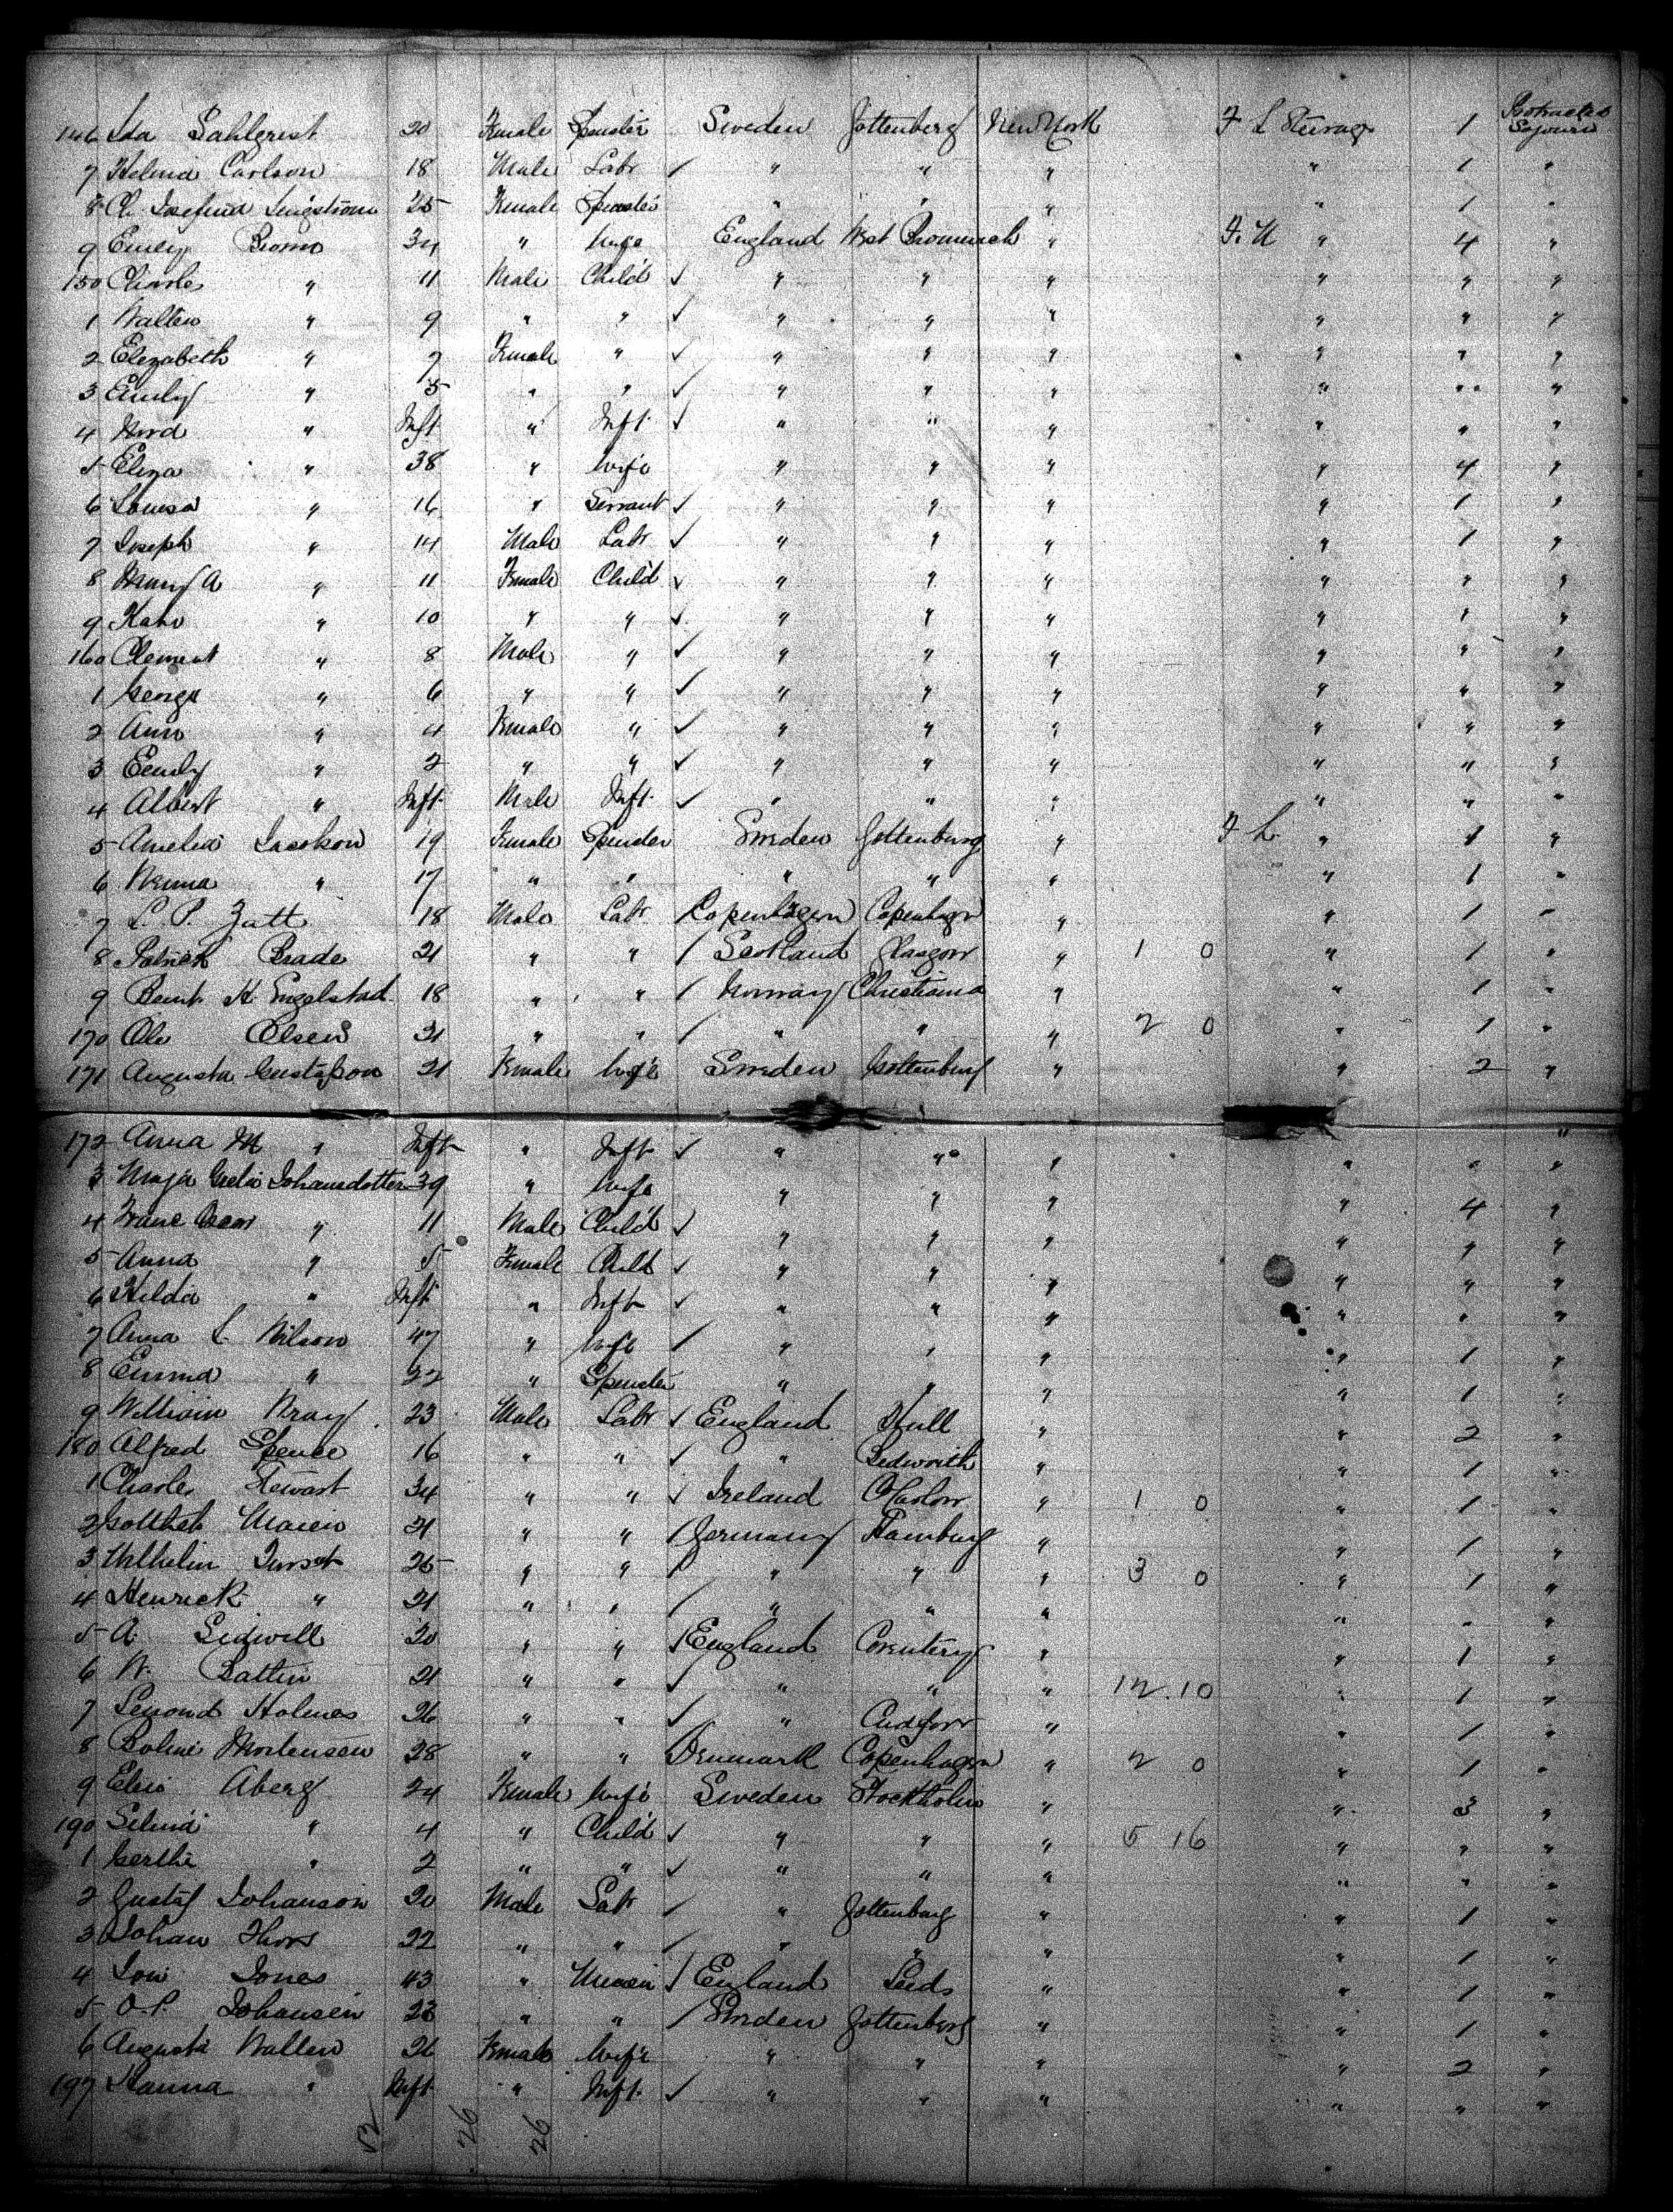 146 Ida Sahlgrist 20 Female Spinster Sweden Gottenberg New York F L Steerage 1 Protracted Sojourn
7 Helmia Carlson 18 Male Labr / " " " " 1 "
8 C. Josefina 25 Female Spinster " " " " 1 "
9 Emily 34 " Wife England West Bromwich " F. U " 4 "
150 Charles " 11 Male Child ✓ " " " " " "
1 Walter " 9 " " ✓ " " " " " "
2 Elizabeth " 7 Female " ✓ " " " " " "
3 Emily " 5 " " ✓ " " " " " "
4 " Inft " Inft ✓ " " " " " "
5 Eliza " 38 " Wife " " " " 4 "
6 Louisa " 16 " Servant ✓ " " " " 1 "
7 Joseph " 14 Male Labr ✓ " " " " 1 "
8 Mary A " 11 Female Child ✓ " " " " " "
9 Kate " 10 " " ✓ " " " " " "
160 Clement " 8 Male " ✓ " " " " " "
1 George " 6 " " ✓ " " " " " "
2 Ann " 4 Female " ✓ " " " " " "
3 Emily " 2 " " ✓ " " " " " "
4 Albert " Inft Male Inft ✓ " " " " " "
5 Amelia Jacobson 19 Female Spinster Sweden Gottenburg " F L " 1 "
6 " 17 " " " " " " 1 "
7 L. P. Zatt 18 Male Labr / Copenhagen Copenhagen " " 1 "
8 Patrick Brade 21 " " / Scotland Glasgow " 1 0 " 1 "
9 Bernt H Engelstad 18 " " / Norway Christiania " " 1 "
170 Ole Olsen 31 " " / " " " 2 0 " 1 "
171 Augusta Gustafson 21 Female Wife Sweden Gottenburg " " 2 "
172 Anna M " Inft " Inft ✓ " " " " " "
3 Maja Johansdotter 39 " Wife " " " " 4 "
4 Oscar " 11 Male Child ✓ " " " " " "
5 Anna " 5 Female Child ✓ " " " " " "
6 Hilda " Inft " Inft ✓ " " " " " "
7 Anna L. Nilson 47 " Wife / " " " " 1 "
8 Emma " 22 " Spinster " " " " 1 "
9 William Bray 23 Male Labr ✓ England Hull " " 2 "
180 Alfred Spence 16 " " ✓ " Bedworth " " 1 "
1 Charles Stewart 34 " " ✓ Ireland Carlow " 1 0 " 1 "
2 Gottlieb 21 " " / Germany Hamburg " " 1 "
3 Wilhelm 25 " " / " " " 3 0 " 1 "
4 Henrick " 21 " " / " " " " " "
5 A. Sidwell 20 " " / England Coventery " " 1 "
6 W. Battin 21 " " ✓ " " " 12.10 " 1 "
7 Holmes 26 " " ✓ " " " 1 "
8 Mortensen 28 " " Denmark Copenhagen " 2 0 " 1 "
9 Aberg 24 Female Wife Sweden Stockholm " " 3 "
190 Selma " 4 " Child ✓ " " " 5 16 " " "
1 " 2 " " ✓ " " " " " "
2 Gustaf Johanson 20 Male Labr / " Gottenburg " " 1 "
3 Johan Thors 22 " " / " " " " 1 "
4 Jones 43 " / England Leeds " " 1 "
5 O. P. Johansen 23 " " / Sweden Gottenberg " " 1 "
6 Augusta Wallen 26 Female Wife " " " " 2 "
197 Hanna " Inft " Inft ✓ " " " " " "
52 26 26